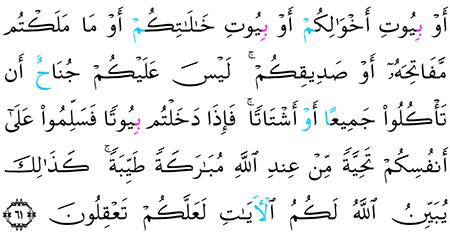 أَوْ بِيُوتِ أَخْوَٰلِكُمْ أَوْ بِيُوتِ خَٰلَٰتِكُمْ أَوْ مَا مَلَكْتُم
مَّفَاتِحَهُۥٓ أَوْ صَدِيقِكُمْ ۚ لَيْسَ عَلَيْكُمْ جُنَاحٌ أَن
تَأْكُلُوا۟ جَمِيعًا أَوْ أَشْتَاتًا ۚ فَإِذَا دَخَلْتُم بِيُوتًا فَسَلِّمُوا۟ عَلَىٰٓ
أَنفُسِكُمْ تَحِيَّةً مِّنْ عِندِ ٱللَّهِ مُبَٰرَكَةً طَيِّبَةً ۚ كَذَٰلِكَ
يُبَيِّنُ ٱللَّهُ لَكُمُ ٱلْأَيَٰتِ لَعَلَّكُمْ تَعْقِلُونَ ۝٦١